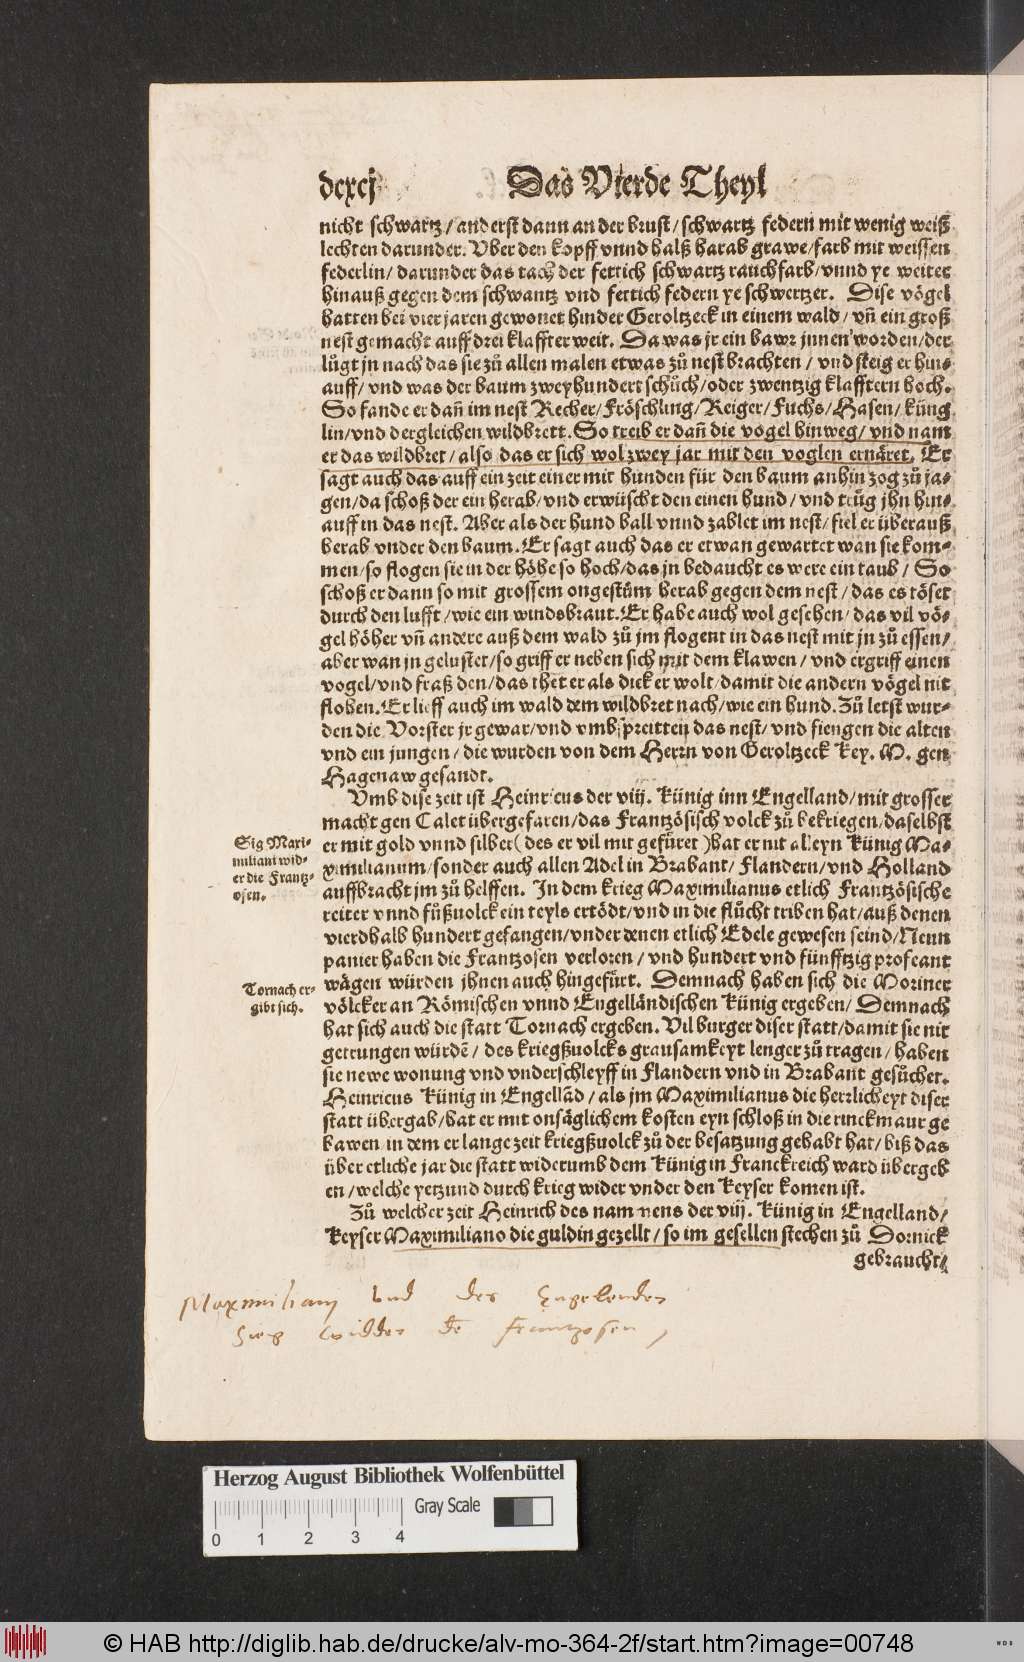 dcxcj Das Vierde Theyl
nicht schwartz/anderst dann an der brust/schwartz federn mit wenig weiß
lechten darunder. Vber den kopff vnnd halß harab grawe/farb mit weissen
federlin/darunder das tach der fettich schwartz rauchfarb/vnnd ye weiter
hinauß gegen dem schwantz vnd fettich federn ye schwertzer. Dise vögel
hatten bei vier jaren gewonet hinder Geroltzeck in einem wald/vñ ein groß
nest gemacht auff drei klaffter weit. Da was jr ein bawr jnnen worden/der
lůgt jn nach das sie zů allen malen etwas zů nest brachten/vnd steig er hin-
auff/vnd was der baum zweyhundert schůch/oder zwentzig klafftern hoch.
So fande er dañ im nest Recher/Fröschling/Reiger/Fuchs/Hasen/küng
lin/vnd dergleichen wildbrett. So treib er dañ die vogel hinweg/vnd nam
er das wildbret/also das er sich wol zwey jar mit den voglen ernäret. Er
sagt auch das auff ein zeit einer mit hunden für den baum anhin zog zů ja-
gen/da schoß der ein herab/vnd erwüscht den einen hund/vnd trůg jhn hin-
auff in das nest. Aber als der hund ball vnnd zablet im nest/fiel er überauß
herab vnder den baum. Er sagt auch das er etwan gewartet wan sie kom-
men/so flogen sie in der höhe so hoch/das jn bedaucht es were ein taub/So
schoß er dann so mit grossem ongestüm herab gegen dem nest/das es töset
durch den lufft/wie ein windsbraut. Er habe auch wol gesehen/das vil vö-
gel höher vñ andere auß dem wald zů jm flogent in das nest mit jn zů essen/
aber wan jn gelustet/so griff er neben sich mit dem klawen/vnd ergriff einen
vogel/vnd fraß den/das thet er als dick er wolt/damit die andern vögel nit
flohen. Er lieff auch im wald dem wildbret nach/wie ein hund. Zů letst wur-
den die Vorster jr gewar/vnd vmbspreitten das nest/vnd fiengen die alten
vnd ein jungen/die wurden von dem Herrn von Geroltzeck Key. M. gen
Hagenaw gesandt.
Vmb dise zeit ist Heinricus der viij. Künig inn Engelland/mit grosser
macht gen Calet übergefaren/das Frantzösisch volck zů bekriegen/daselbst
er mit gold vnnd silber(des er vil mit gefüret)hat er nit alleyn Künig Ma-
ximilianum/sonder auch allen Adel in Brabant/Flandern/vnd Holland
auffbracht jm zů helffen. In dem krieg Maximilianus etlich Frantzösische
reiter vnnd fůßuolck ein teyls ertödt/vnd in die flücht triben hat/auß denen
vierdhalb hundert gefangen/vnder denen etlich Edele gewesen seind/Neun
panier haben die Frantzosen verloren/vnd hundert vnd fünfftzig profeant
wägen würden jhnen auch hingefürt. Demnach haben sich die Moriner
völcker an Römischen vnnd Engelländischen Künig ergeben/Demnach
hat sich auch die statt Tornach ergeben. Vil burger diser statt/damit sie nit
getrungen würdē/des kriegßuolcks grausamkeyt lenger zů tragen/haben
sie newe wonung vnd vnderschleyff in Flandern vnd in Brabant gesůchet.
Heinricus Künig in Engellãd/als jm Maximilianus die herrlicheyt diser
statt übergab/hat er mit onsäglichem kosten eyn schloß in die rinckmaur ge
bawen in dem er lange zeit kriegßuolck zů der besatzung gehabt hat/biß das
über etliche jar die statt widerumb dem Künig in Franckreich ward übergeb
en/welche yetzund durch krieg wider vnder den Keyser komen ist.
Zů welcher zeit Heinrich des nammens der viij. Künig in Engelland/
Keyser Maximiliano die guldin gezellt/so im gesellen stechen zů Dornick
gebraucht/
Sig Maxi-
miliani wid-
er die Frantz-
osen.
Tornach er-
gibt sich.
Maximiliani vnd des Engelender
Sieg widder dē Frantzosen
Herzog August Bibliothek Wolfenbüttel
Gray Scale
0 1 2 3 4
© HAB http://diglib.hab.de/drucke/alv-mo-364-2f/start.htm?image=00748